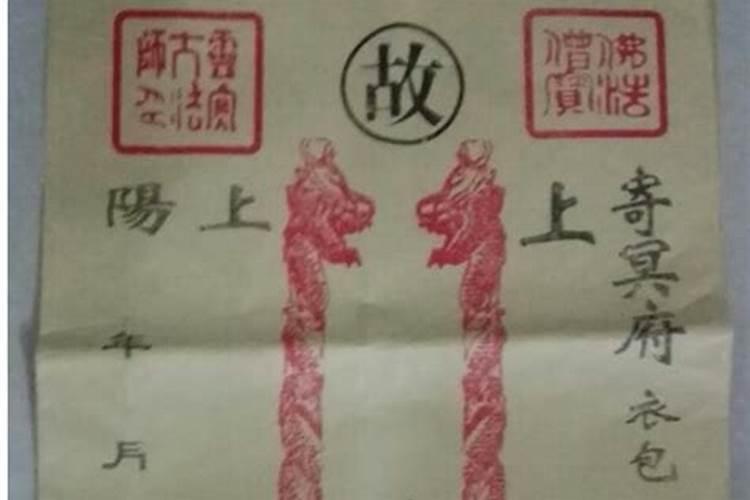 佛法
僧寶
故
靈寶
大法
師印
寄冥府衣包
上
上
陽年月